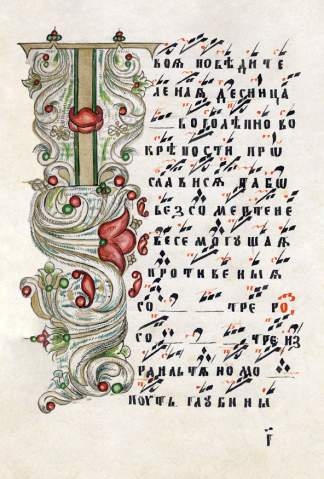 Т
воѧ побѣдите
леная десница
боголѣпно во
крѣпости прѡ
слависѧ та бѡ
безсомертене
всемогущаѧ
противеныѧ
со тре ро
со тре из
раильтѧномо
поуть глубины
г҃